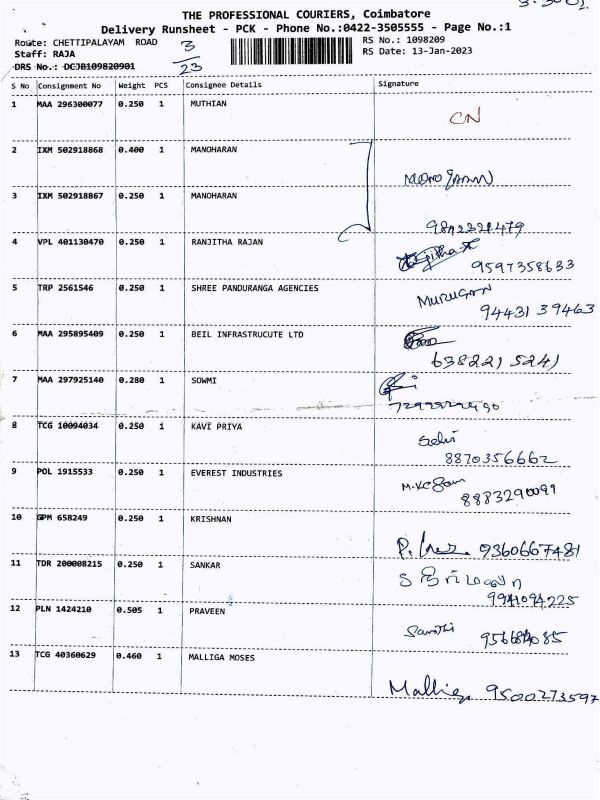 THE PROFESSIONAL COURIERS, Coimbatore
Delivery Runsheet - PCK - Phone No.:0422-3505555 - Page No.:1
Route: CHETTIPALAYAM ROAD
3
RS No.: 1098209
Staff: RAJA
23
RS Date: 13-Jan-2023
DRS No.: DCJB109820901
S No Consignment No Weight PCS Consignee Details Signature
1 MAA 296300077 0.250 1 MUTHIAN CN
2 IXM 502918868 0.400 1 MANOHARAN
3 IXM 502918867 0.250 1 MANOHARAN
4 VPL 401130470 0.250 1 RANJITHA RAJAN 9597358633
5 TRP 2561546 0.250 1 SHREE PANDURANGA AGENCIES MURUGAN 94431 39463
6 MAA 295895409 0.250 1 BEIL INFRASTRUCUTE LTD 638221 5241
7 MAA 297925140 0.280 1 SOWMI
8 TCG 10094034 0.250 1 KAVI PRIYA Selvi 8870356662
9 POL 1915533 0.250 1 EVEREST INDUSTRIES 8883290099
10 GPM 658249 0.250 1 KRISHNAN 9360667481
11 TDR 200008215 0.250 1 SANKAR 9941094225
12 PLN 1424210 0.505 1 PRAVEEN
13 TCG 40360629 0.460 1 MALLIGA MOSES Malliga 9500273597